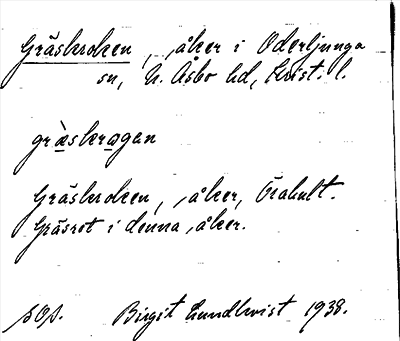 Gräskroken, åker i Oderljunga
sn, N. Åsbo hd, Krist. l.
gräskrogan
Gräskroken, åker, Örahult.
Gräsrot i denna åker.
sOp. Birgit Lundkvist 1938.